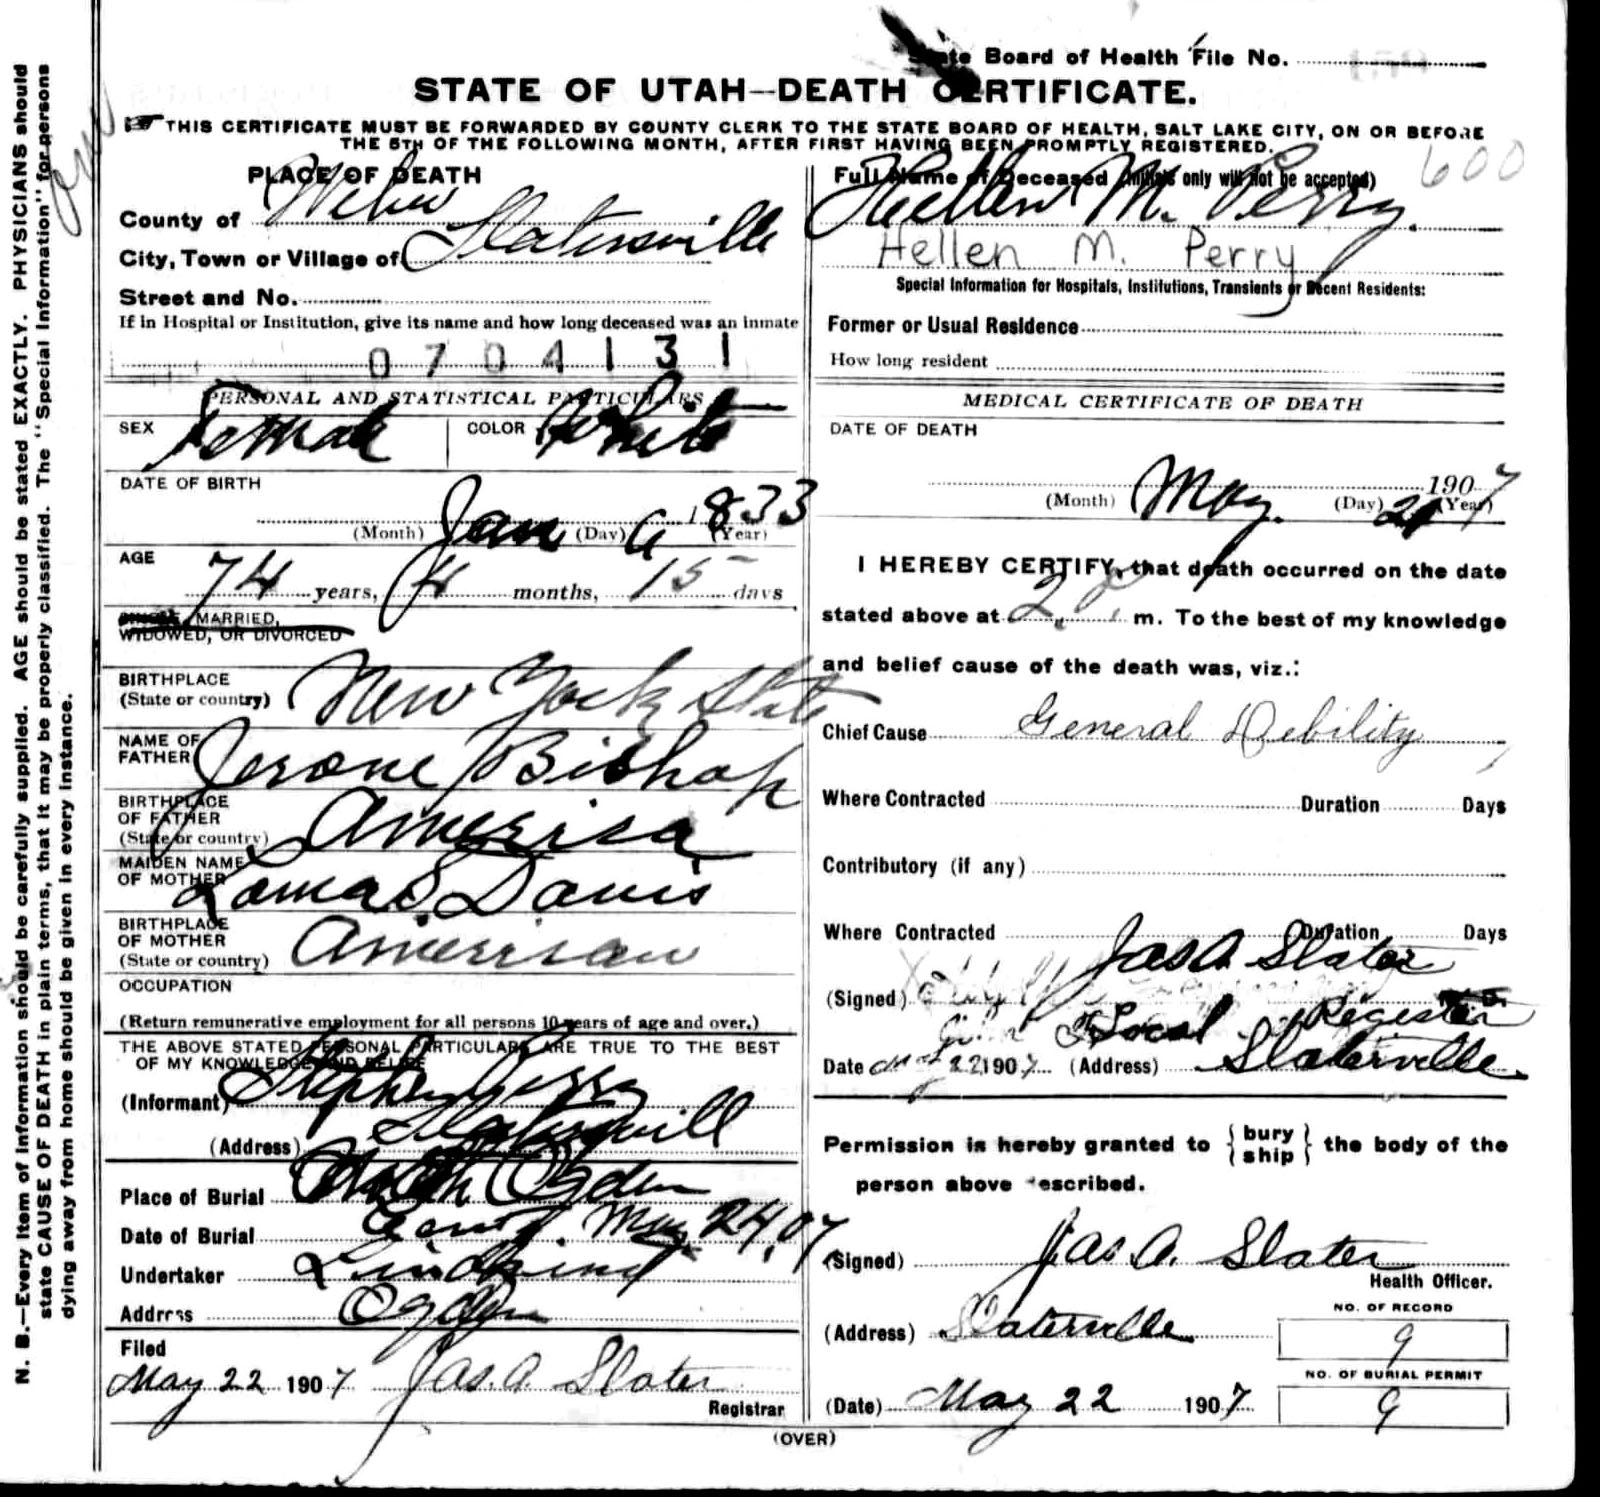 State Board of Health File No.
STATE OF UTAH—DEATH CERTIFICATE.
THIS CERTIFICATE MUST BE FORWARDED BY COUNTY CLERK TO THE STATE BOARD OF HEALTH, SALT LAKE CITY, ON OR BEFORE
THE 5TH OF THE FOLLOWING MONTH, AFTER FIRST HAVING BEEN PROMPTLY REGISTERED.
600
PLACE OF DEATH
County of Weber
City, Town or Village of Slatersville
Street and No.
If in Hospital or Institution, give its name and how long deceased was an inmate
0704131
PERSONAL AND STATISTICAL PARTICULARS
SEX Female COLOR White
DATE OF BIRTH
(Month) Jan (Day) 6 1833 (Year)
AGE
74 years, 4 months, 15 days
SINGLE, MARRIED,
WIDOWED, OR DIVORCED
BIRTHPLACE
(State or country) New York State
NAME OF
FATHER Jerome Bishop
BIRTHPLACE
OF FATHER
(State or country) America
MAIDEN NAME
OF MOTHER Davis
BIRTHPLACE
OF MOTHER
(State or country) American
OCCUPATION
(Return remunerative employment for all persons 10 years of age and over.)
THE ABOVE STATED PERSONAL PARTICULARS ARE TRUE TO THE BEST
OF MY KNOWLEDGE AND BELIEF
(Informant) Stephen Perry
(Address) Slatersvill
Place of Burial North Ogden
Date of Burial May 24, 07
Undertaker
Address Ogden
Filed
May 22 1907 Jas. A. Slater
Registrar
Full Name of Deceased (Initials only will not be accepted)
Hellen M. Perry.
Hellen M. Perry
Special Information for Hospitals, Institutions, Transients or Recent Residents:
Former or Usual Residence
How long resident
MEDICAL CERTIFICATE OF DEATH
DATE OF DEATH
(Month) May (Day) 21 1907 (Year)
I HEREBY CERTIFY, that death occurred on the date
stated above at 2 P. m. To the best of my knowledge
and belief cause of the death was, viz.:
Chief Cause General Debility
Where Contracted Duration Days
Contributory (if any)
Where Contracted Duration Days
(Signed) Jas A. Slater M. D.
Local Register
Date May 22 1907 (Address) Slaterville
Permission is hereby granted to { bury ship } the body of the
person above described.
(Signed) Jas. A. Slater
Health Officer.
(Address) Slaterville
NO. OF RECORD
9
NO. OF BURIAL PERMIT
9
(Date) May 22 1907
(OVER)
N. B.—Every item of information should be carefully supplied. AGE should be stated EXACTLY. PHYSICIANS should
state CAUSE OF DEATH in plain terms, that it may be properly classified. The "Special Information" for persons
dying away from home should be given in every instance.